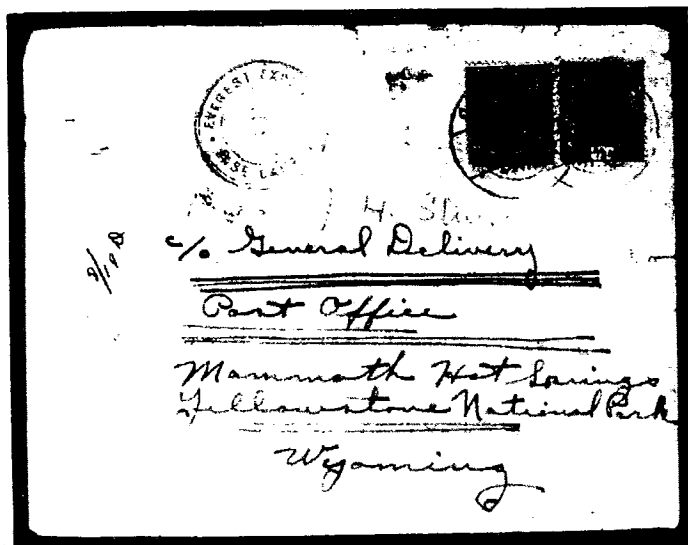 EVEREST EXP
BASE CAMP
H.
c/o General Delivery
Post Office
Mammoth Hot Springs
Yellowstone National Park
Wyoming